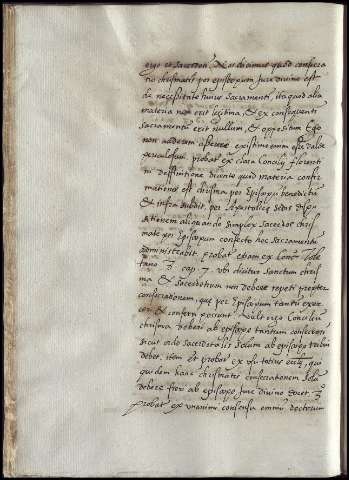 Nos dicimus quod consecra
tio chrismatis per episcopum jure divino est
de necessitate huius sacramenti, ita quod alia
materia non erit legitima, & ex consequenti
sacramentũ erit nullum, & oppositum Ego
non auderem asserere existimo enim esse valde
periculosum probat ex clara Concilij florenti
ni deffinitione dicente quod materia confir
mationis est chrisma per Episcopũ benedictũ
& infra subdit, per Apostolicę sedis dispẽ
sationem aliquando simplex sacerdos chris
mate per Episcopum confecto hoc sacramentũ
administravit. probat etiam ex Conc. Tole
tano cap. 7. ubi dicitur sanctum chris
ma & sacerdotium non debere repeti propter
consecrationem que per Episcopum tantũ
& conferri possunt. Vult ergo Concilium
chrisma deberi ab episcopo tantum consecrari
sicut ordo sacerdotalis solum ab episcopo tribui
debet. item et probat ex usu totius ecclę, qu
quidem hanc chrismatis consecrationem sola
debere fieri ab episcopo jure divino docet.
probat ex unanimi consensu omniũ doctorum